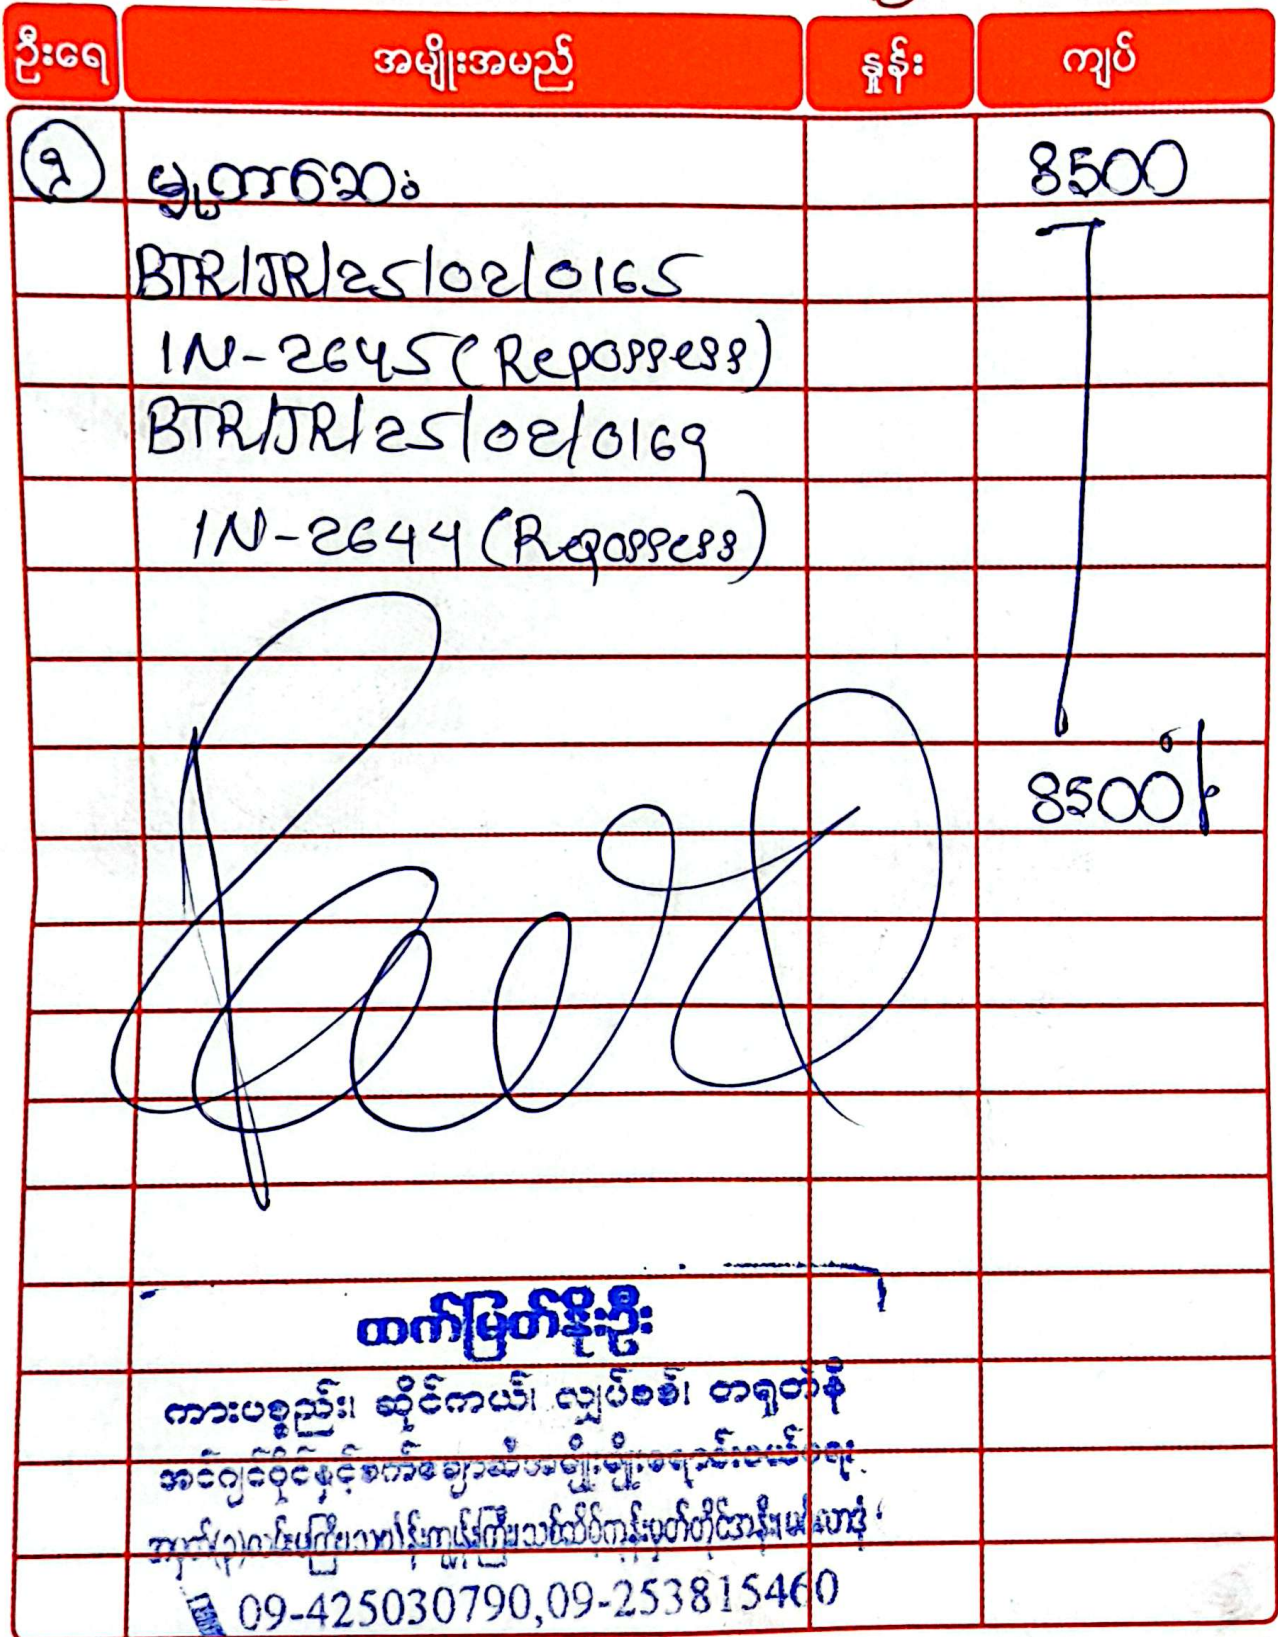 ဦးရေ အမျိုးအမည် နှုန်း ကျပ်
၃ မှုတ်ဆေး 8500
BTR/JR/25/02/0165
1N-2645 (Repossess)
BTR/JR/25/02/0169
1N-2644 (Repossess)
8500
ထက်မြတ်နိုးဦး
ကားပစ္စည်း၊ ဆိုင်ကယ်၊ လျှပ်စစ်၊ တရုတ်နီ
အင်ဂျင်ဝိုင်နှင့်စက်ချောဆီအမျိုးမျိုးရောင်းဝယ်ရေး
09-425030790,09-253815460